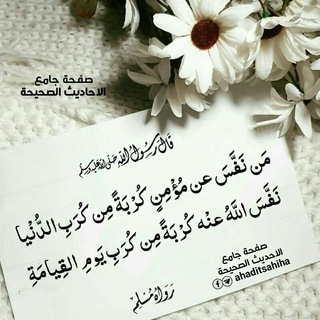 صفحة جامع
الاحاديث الصحيحة
قَالَ رَسُولُ اللَّهِ صلى الله عليه وسلم
مَن نَفَّسَ عن مُؤْمِنٍ كُرْبَةً مِن كُرَبِ الدُّنْيا
نَفَّسَ اللَّهُ عنْه كُرْبَةً مِن كُرَبِ يَومِ القِيامَةِ
رَوَاهُ مُسْلِمٌ
صفحة جامع
الاحديث الصحيحة
ahaditsahiha